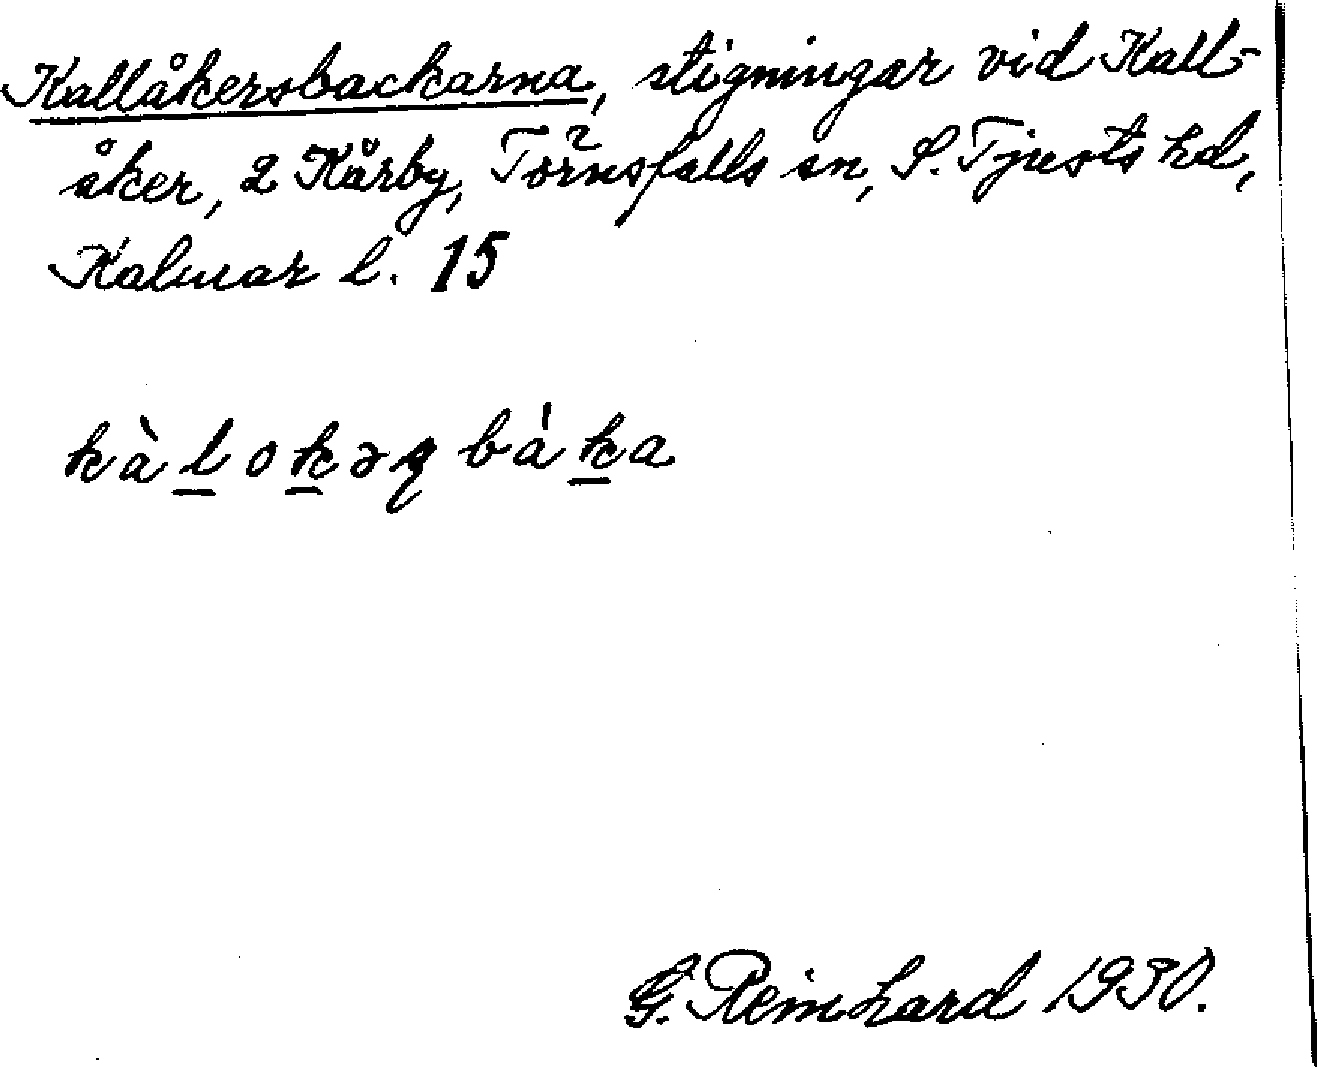 Kallåkersbackarna, stigningar vid Kall-
åker, 2 Kårby, Törnsfalls sn, S. Tjusts hd,
Kalmar l. 15
kàl̲ok̲əʂbák̲a
G. Reinhard 1930.